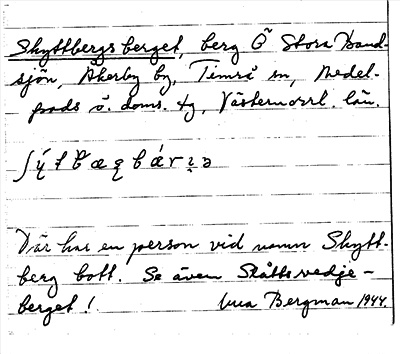 Skyttbergsberget, berg Ö Stora Band-
sjön, Åkerby by, Timrå sn, Medel-
pads ö. doms. tg, Västernorrl. län.
Där har en person vid namn Skytt-
berg bott. Se även Skåttsvedje-
berget!
Bergman 1944.